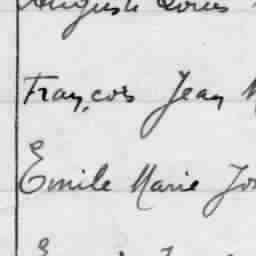 Auguste Louis
François Jean M
Emile Marie Jo